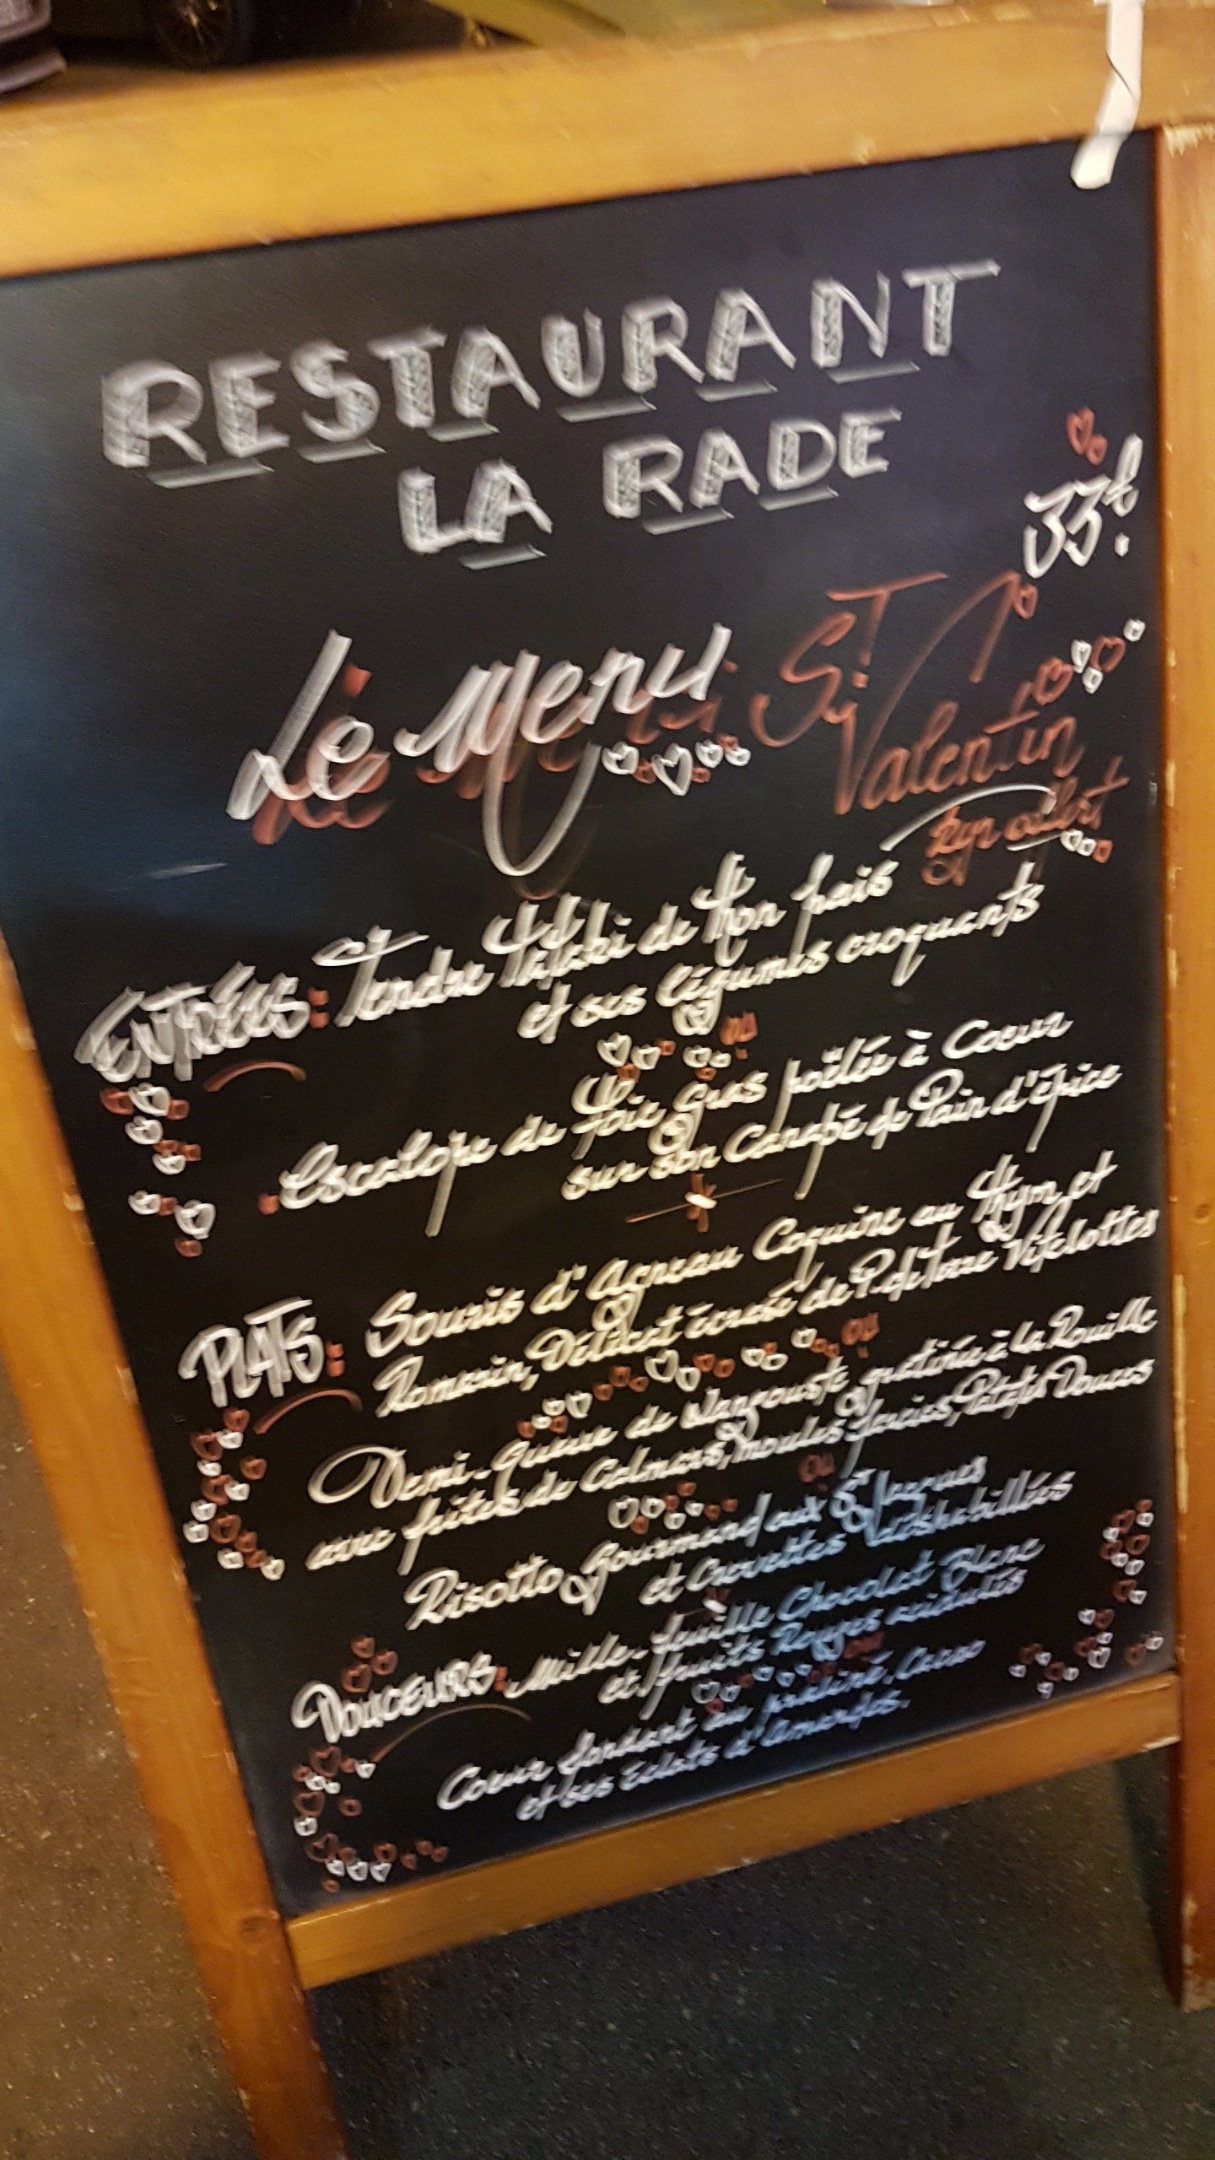 RESTAURANT
LA RADE
33€.
Le Menu St
Valentin
offert
ENTRÉES: Tendre Tataki de thon frais
et ses légumes croquants
ou
Escalope de foie Gras poêlée à Coeur
sur son Canapé de Pain d'épice
PLATS: Souris d'Agneau Coquine au thym et
Romarin, Délicat écrasé de P. de Terre Vitelottes
ou
Demi-Queue de Langouste gratinée à la Rouille
avec de Calmars, moules farcies, Patate Douces
ou
Risotto Gourmand aux St Jacques
et Crevettes déshabillées
DOUCEURS: Mille-feuille Chocolat Blanc
et fruits Rouges acidulés
ou
Coeur fondant au praliné, Cacao
et ses Eclats d'Amandes.